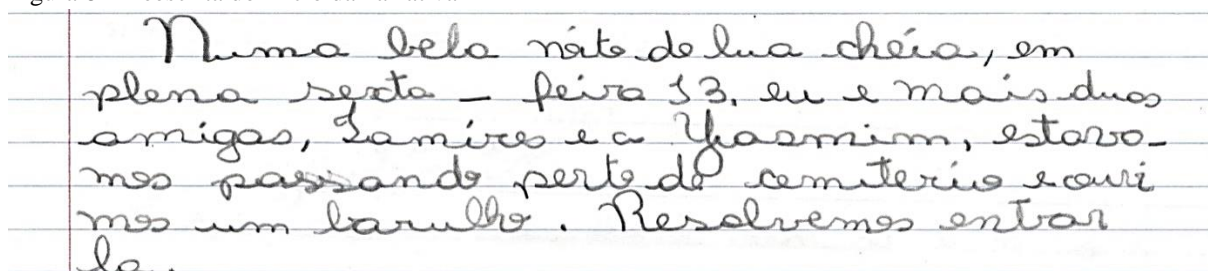 Numa bela noite de lua cheia, em
plena sexta - feira 13, eu e mais duas
amigas, Lamires e a Yhasmim, estava-
mos passando perto do cemiterio e ouvi
mos um barulho. Resolvemos entrar
la.